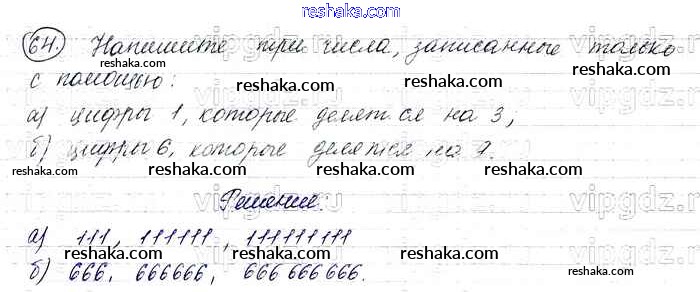 reshaka.com
64. Напишите три числа, записанные только
с помощью:
reshaka.com reshaka.com reshaka.com
а) цифры 1, которые делятся на 3;
б) цифры 6, которые делятся на 9.
reshaka.com reshaka.com reshaka.com
vipgdz.ru vipgdz.ru
Решение:
reshaka.com reshaka.com
а) 111, 111111, 111111111
reshaka.com reshaka.com reshaka.com
б) 666, 666666, 666 666 666.
reshaka.com